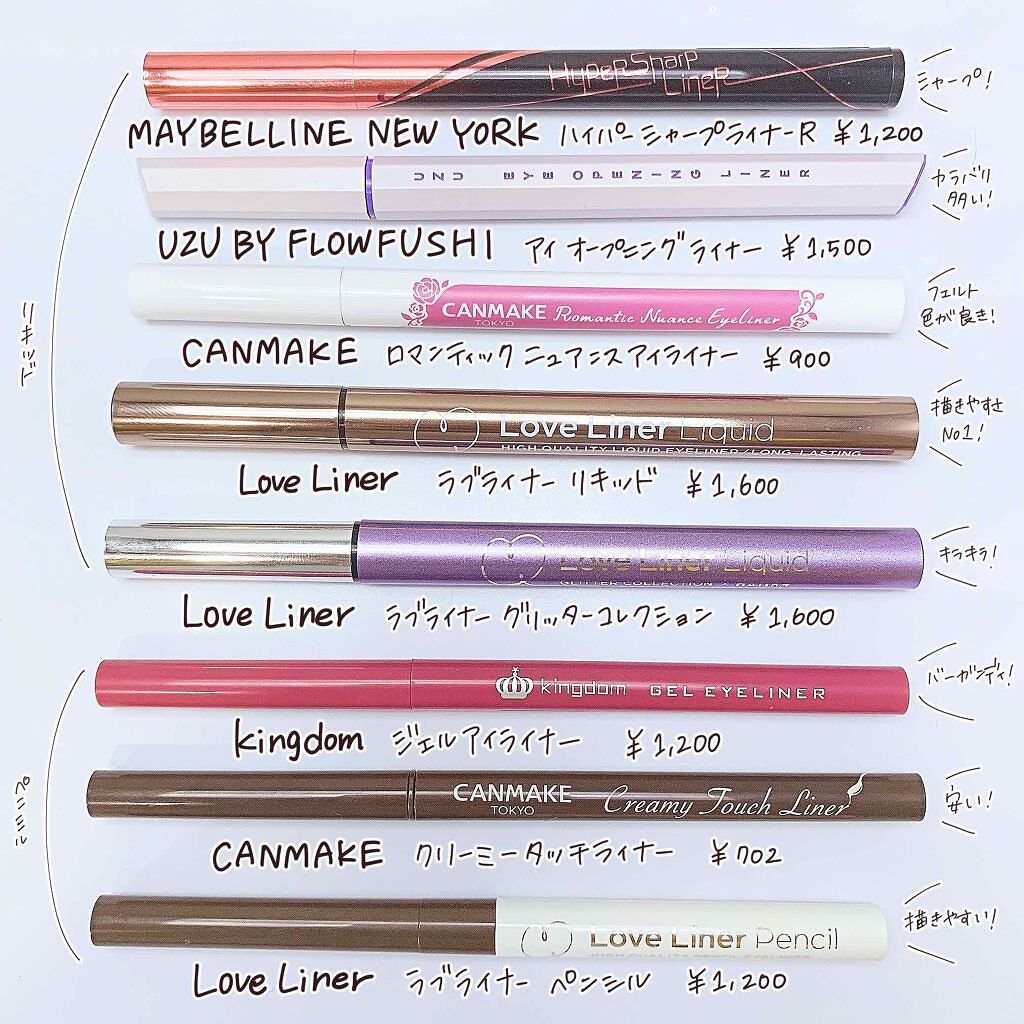 HyperSharp
Liner
シャープ!
MAYBELLINE NEW YORK ハイパーシャープライナーR ¥1,200
UZU EYE OPENING LINER
カラバリ
多い!
UZU BY FLOWFUSHI アイオープニングライナー ¥1,500
CANMAKE Romantic Nuance Eyeliner
TOKYO
フェルト
色が良き!
CANMAKE ロマンティックニュアンスアイライナー ¥900
リキッド
Love Liner Liquid
HIGH QUALITY LIQUID EYELINER/LONG-LASTING
描きやすさ
No1!
Love Liner ラブライナー リキッド ¥1,600
Love Liner Liquid
GLITTER COLLECTION
キラキラ!
Love Liner ラブライナー グリッターコレクション ¥1,600
kingdom GEL EYELINER
バーガンディ!
kingdom ジェルアイライナー ¥1,200
CANMAKE Creamy Touch Liner
TOKYO
安い!
CANMAKE クリーミータッチライナー ¥702
Love Liner Pencil
描きやすい!
Love Liner ラブライナー ペンシル ¥1,200